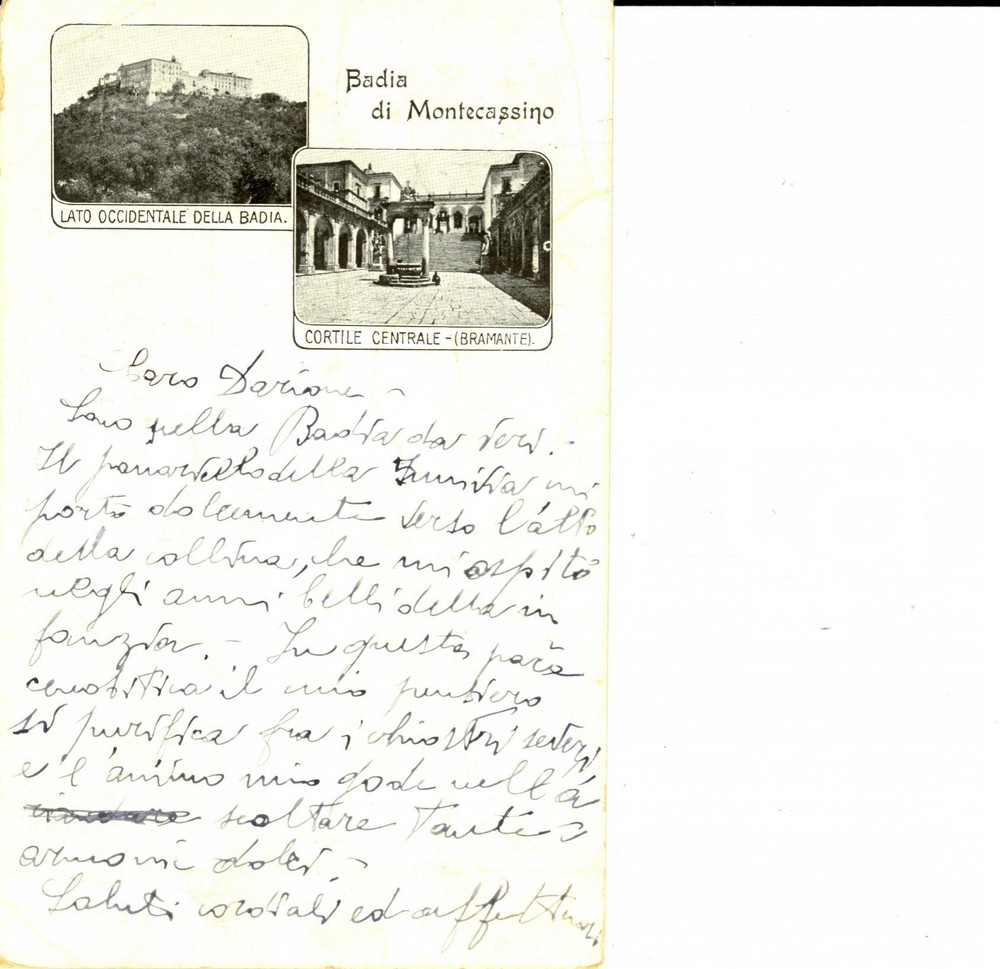 Badia
di Montecassino
LATO OCCIDENTALE DELLA BADIA.
CORTILE CENTRALE-(BRAMANTE).
Caro Darione -
Sono nella Badia da ieri.-
Il della mi
portò dolcemente verso l'alto
della collina, che mi ospitò
negli anni belli della in
fanzia. - In questa pace
cenobitica il mio pensiero
si purifica fra i chiostri severi
e l'animo mio gode nell'a
scoltare tante
armonie dolci.-
Saluti cordiali ed affettuosi